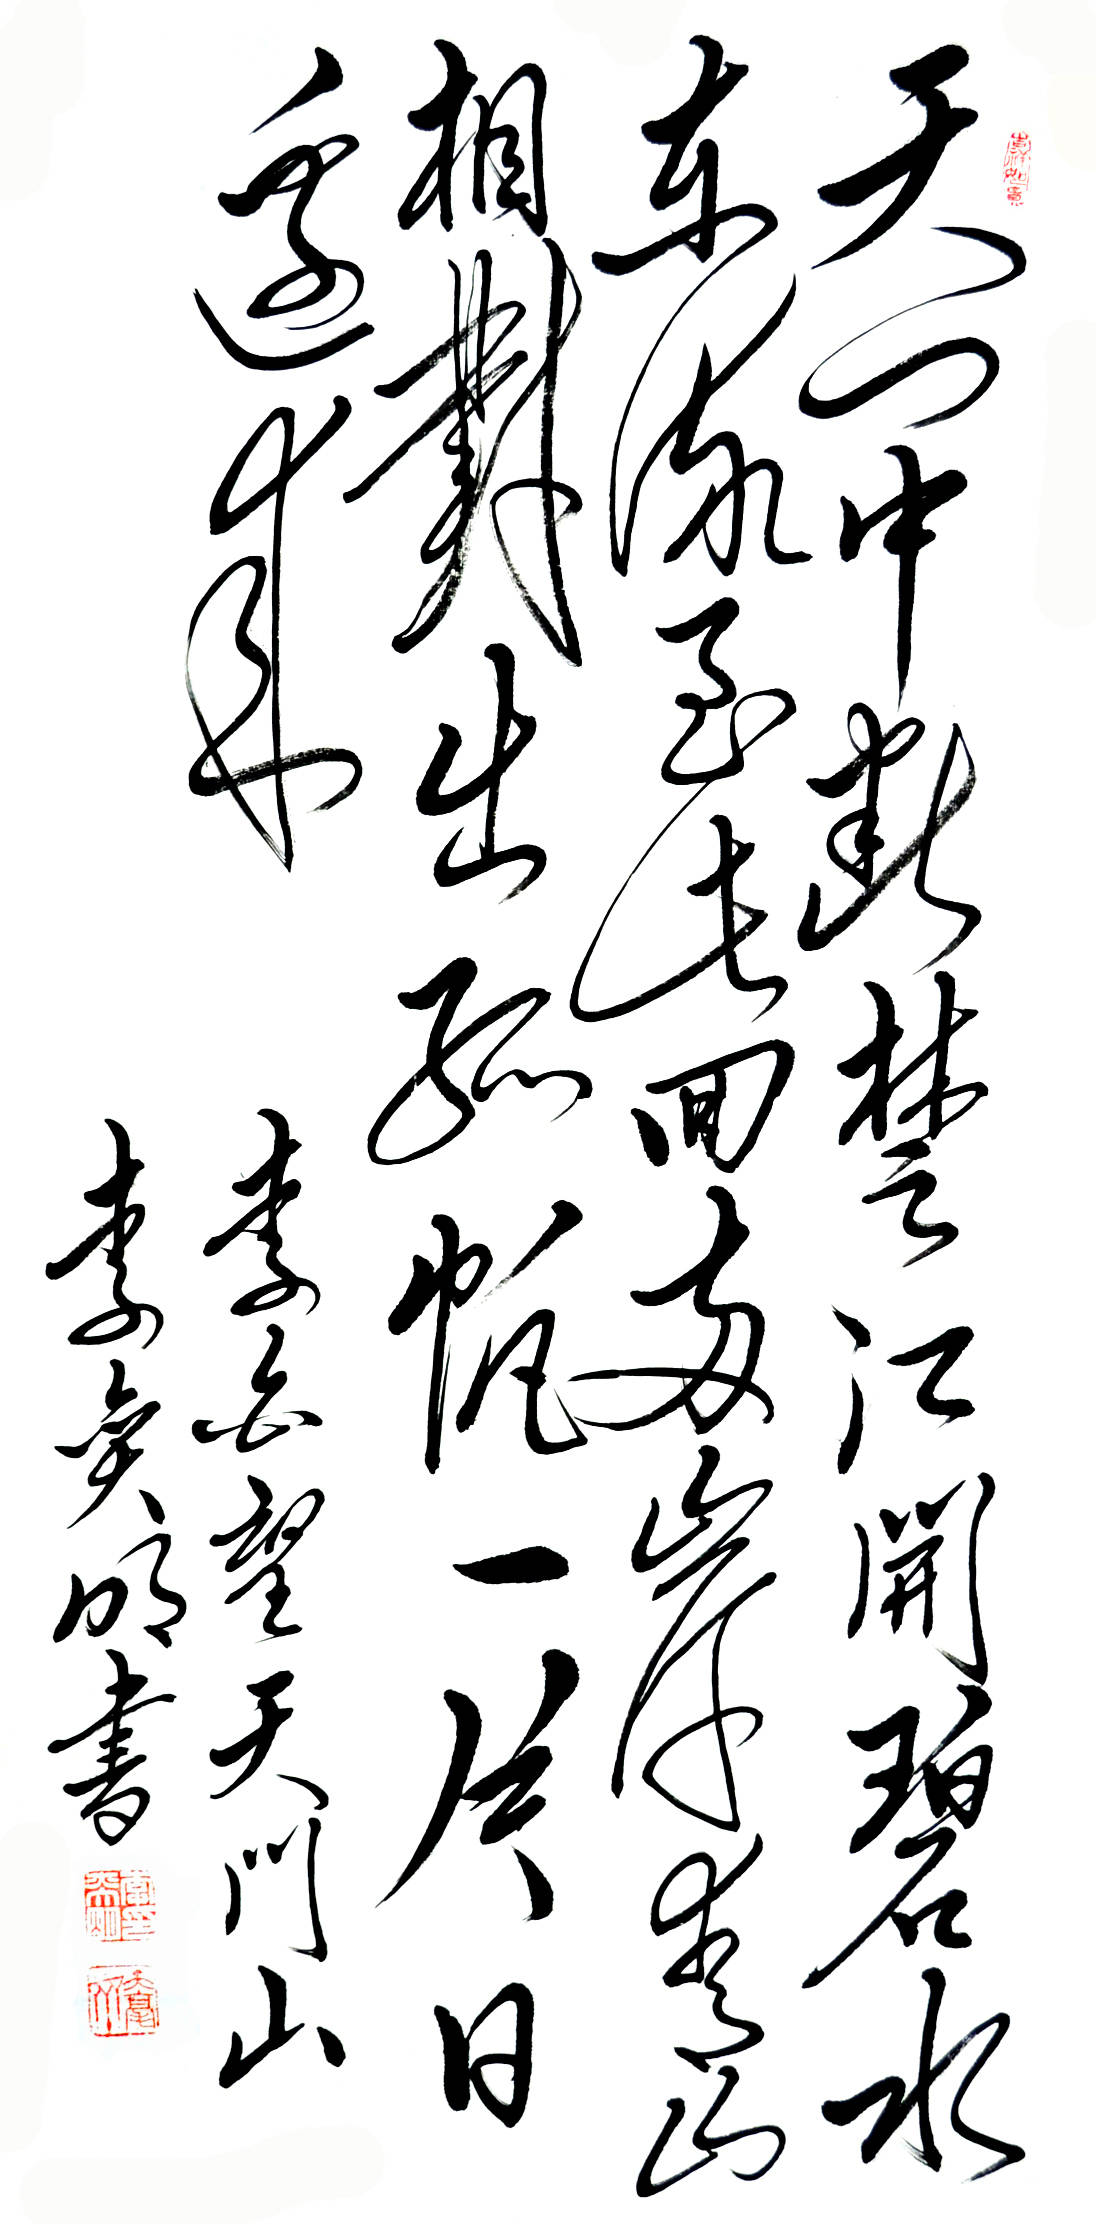 天门中斷楚江開碧水
东流至此回两岸青山
相對出孤帆一片日
邊来
李白望天門山
李明書